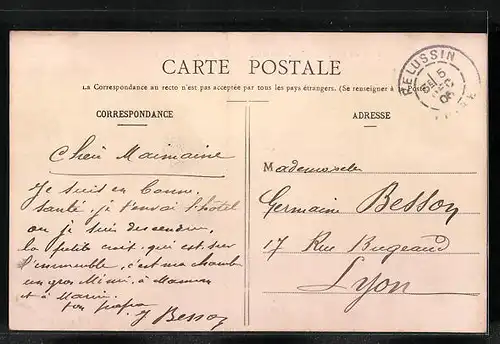 CARTE POSTALE
La Correspondance au recto n'est pas acceptée par tous les pays étrangers. (Se renseigner à la Poste)
PELUSSIN
5
DEC
CORRESPONDANCE
ADRESSE
Chère Mainaine
Je suis en bonne
santé je t'envoi l'hôtel
ou je suis descendu,
la petite croix, qui est sur
l'immeuble, c'est ma chambre
un gros Mimi, à Maman
et à Marie.
ton papa
J Besson
Mademoiselle
Germaine Besson
17 Rue Bugeaud
Lyon